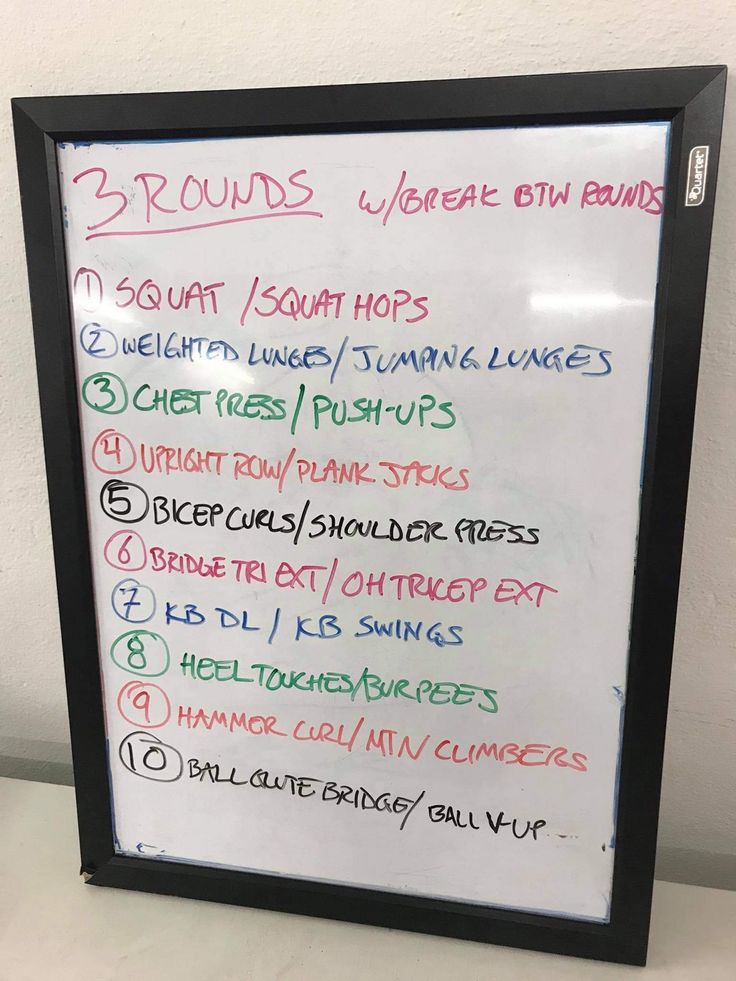 3 ROUNDS W/BREAK BTW ROUNDS
Quartet
1 SQUAT / SQUAT HOPS
2 WEIGHTED LUNGES / JUMPING LUNGES
3 CHEST PRESS / PUSH-UPS
4 UPRIGHT ROW / PLANK JACKS
5 BICEP CURLS / SHOULDER PRESS
6 BRIDGE TRI EXT / OH TRICEP EXT
7 KB DL / KB SWINGS
8 HEEL TOUCHES / BURPEES
9 HAMMER CURL / MTN CLIMBERS
10 BALL GLUTE BRIDGE / BALL V-UP